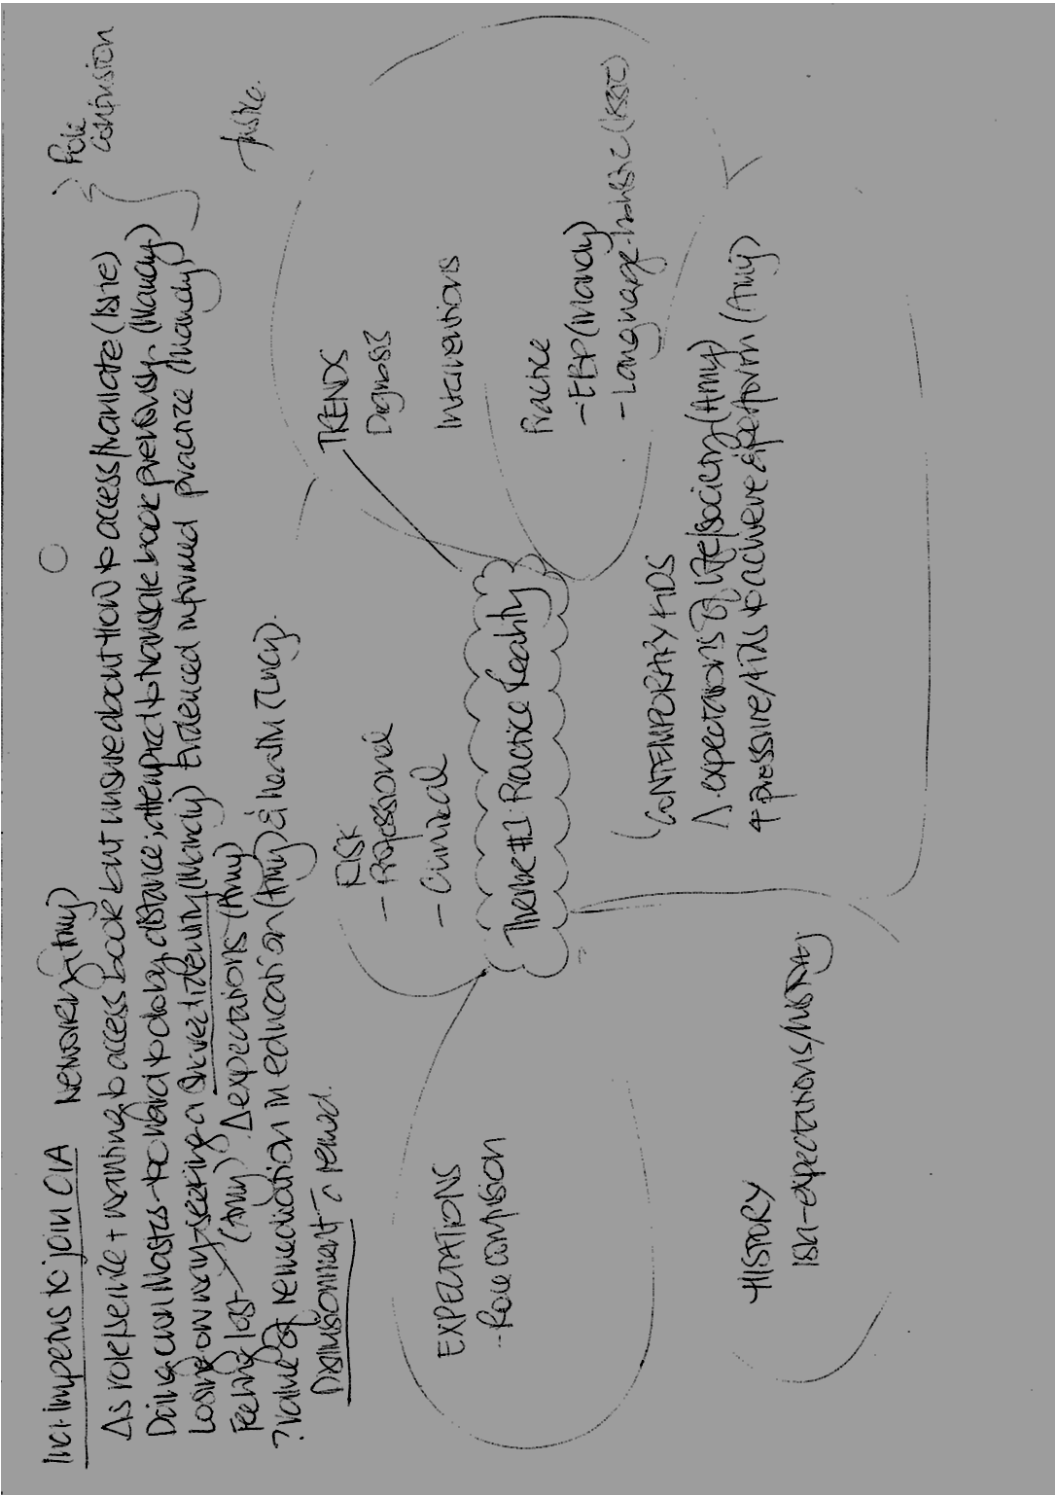 impetus to join CIA Network (Amy)
Δs role/service + wanting to access book but unsure about HOW to access/translate (Issie)
Doing own Masters - too hard to do by distance; attempted to translate book previously. (Mandy)
Losing own way - seeking a direct identity (Mandy) Evidenced informed practice (Mandy)
Feeling lost (Amy) Δ expectations (Amy)
? value of remediation in education (Amy) & health (Lucy).
Disillusionment remed.
Role
confusion
Justice.
RISK
- Professional
- Clinical
TRENDS
Diagnosis
Interventions
Practice
- EBP (Mandy)
- Language - holistic (Issie)
Theme #1: Practice Reality
EXPECTATIONS
- Role confusion
CONTEMPORARY KIDS
Δ expectations of life/society (Amy)
↑ pressure/kids to achieve & perform (Amy)
HISTORY
- expectations/history